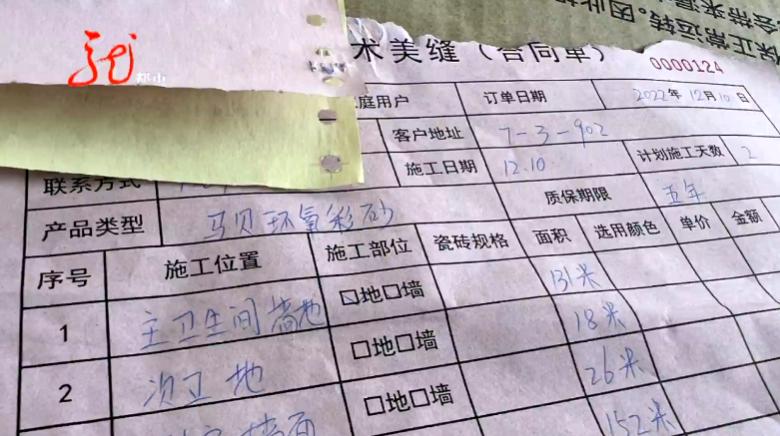 保正常运转
会带来源
。因此
龙
都市
术美缝(合同单)
0000124
庭用户 订单日期 2022年12月10日
客户地址 7-3-902
联系方式 施工日期 12.10 计划施工天数 2
产品类型 马贝环氧彩砂 质保期限 五年
序号 施工位置 施工部位 瓷砖规格 面积 选用颜色 单价 金额
1 主卫生间墙地 ☑地□墙 131米
18米
2 次卫地 □地□墙 26米
墙面 □地□墙 152米